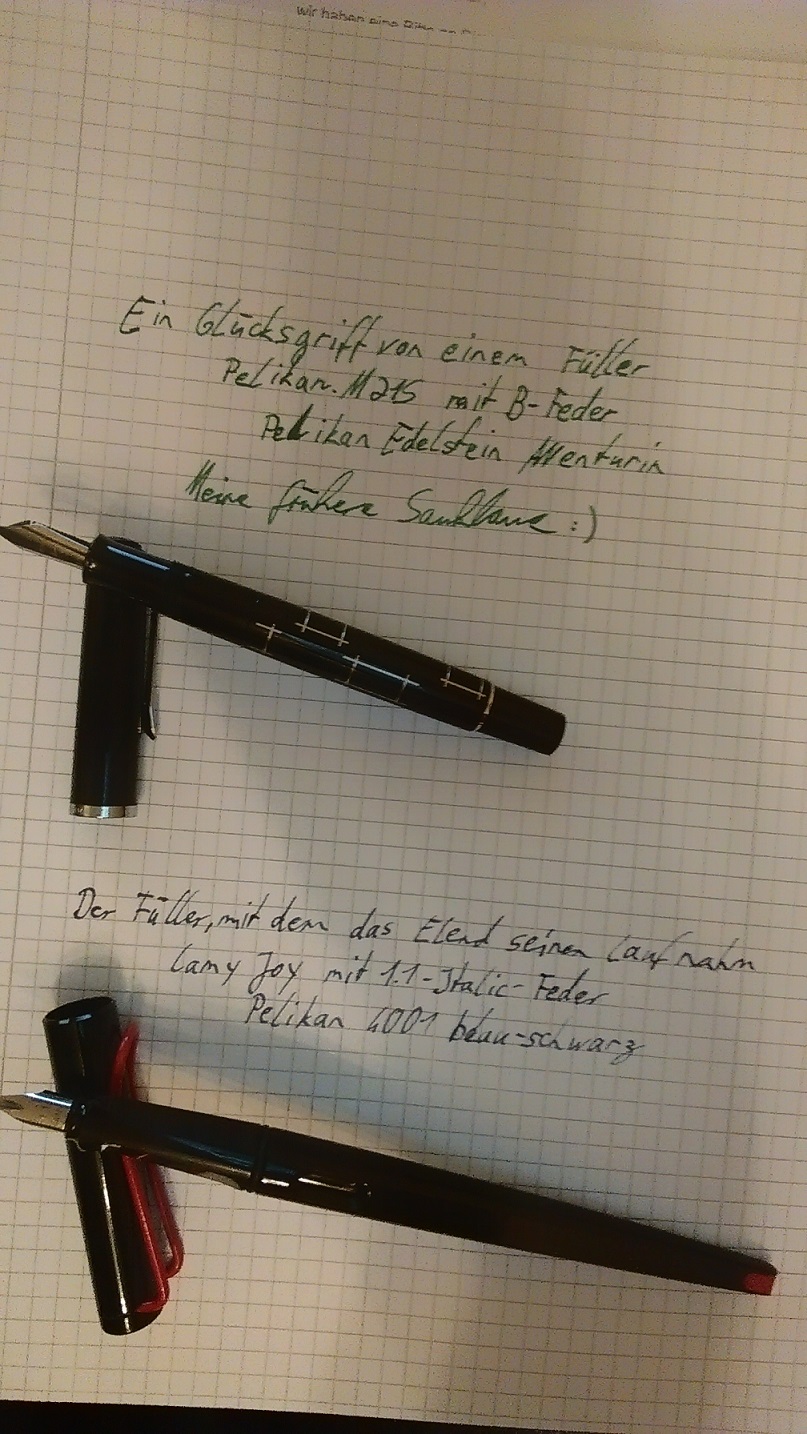 wir haben eine
Ein Glücksgriff von einem Füller
Pelikan M215 mit B-Feder
Pelikan Edelstein Aventurin
Meine frühere Sauklaue :)
Der Füller, mit dem das Elend seinen Lauf nahm
Lamy Joy mit 1.1-Italic-Feder
Pelikan 4001 blau-schwarz